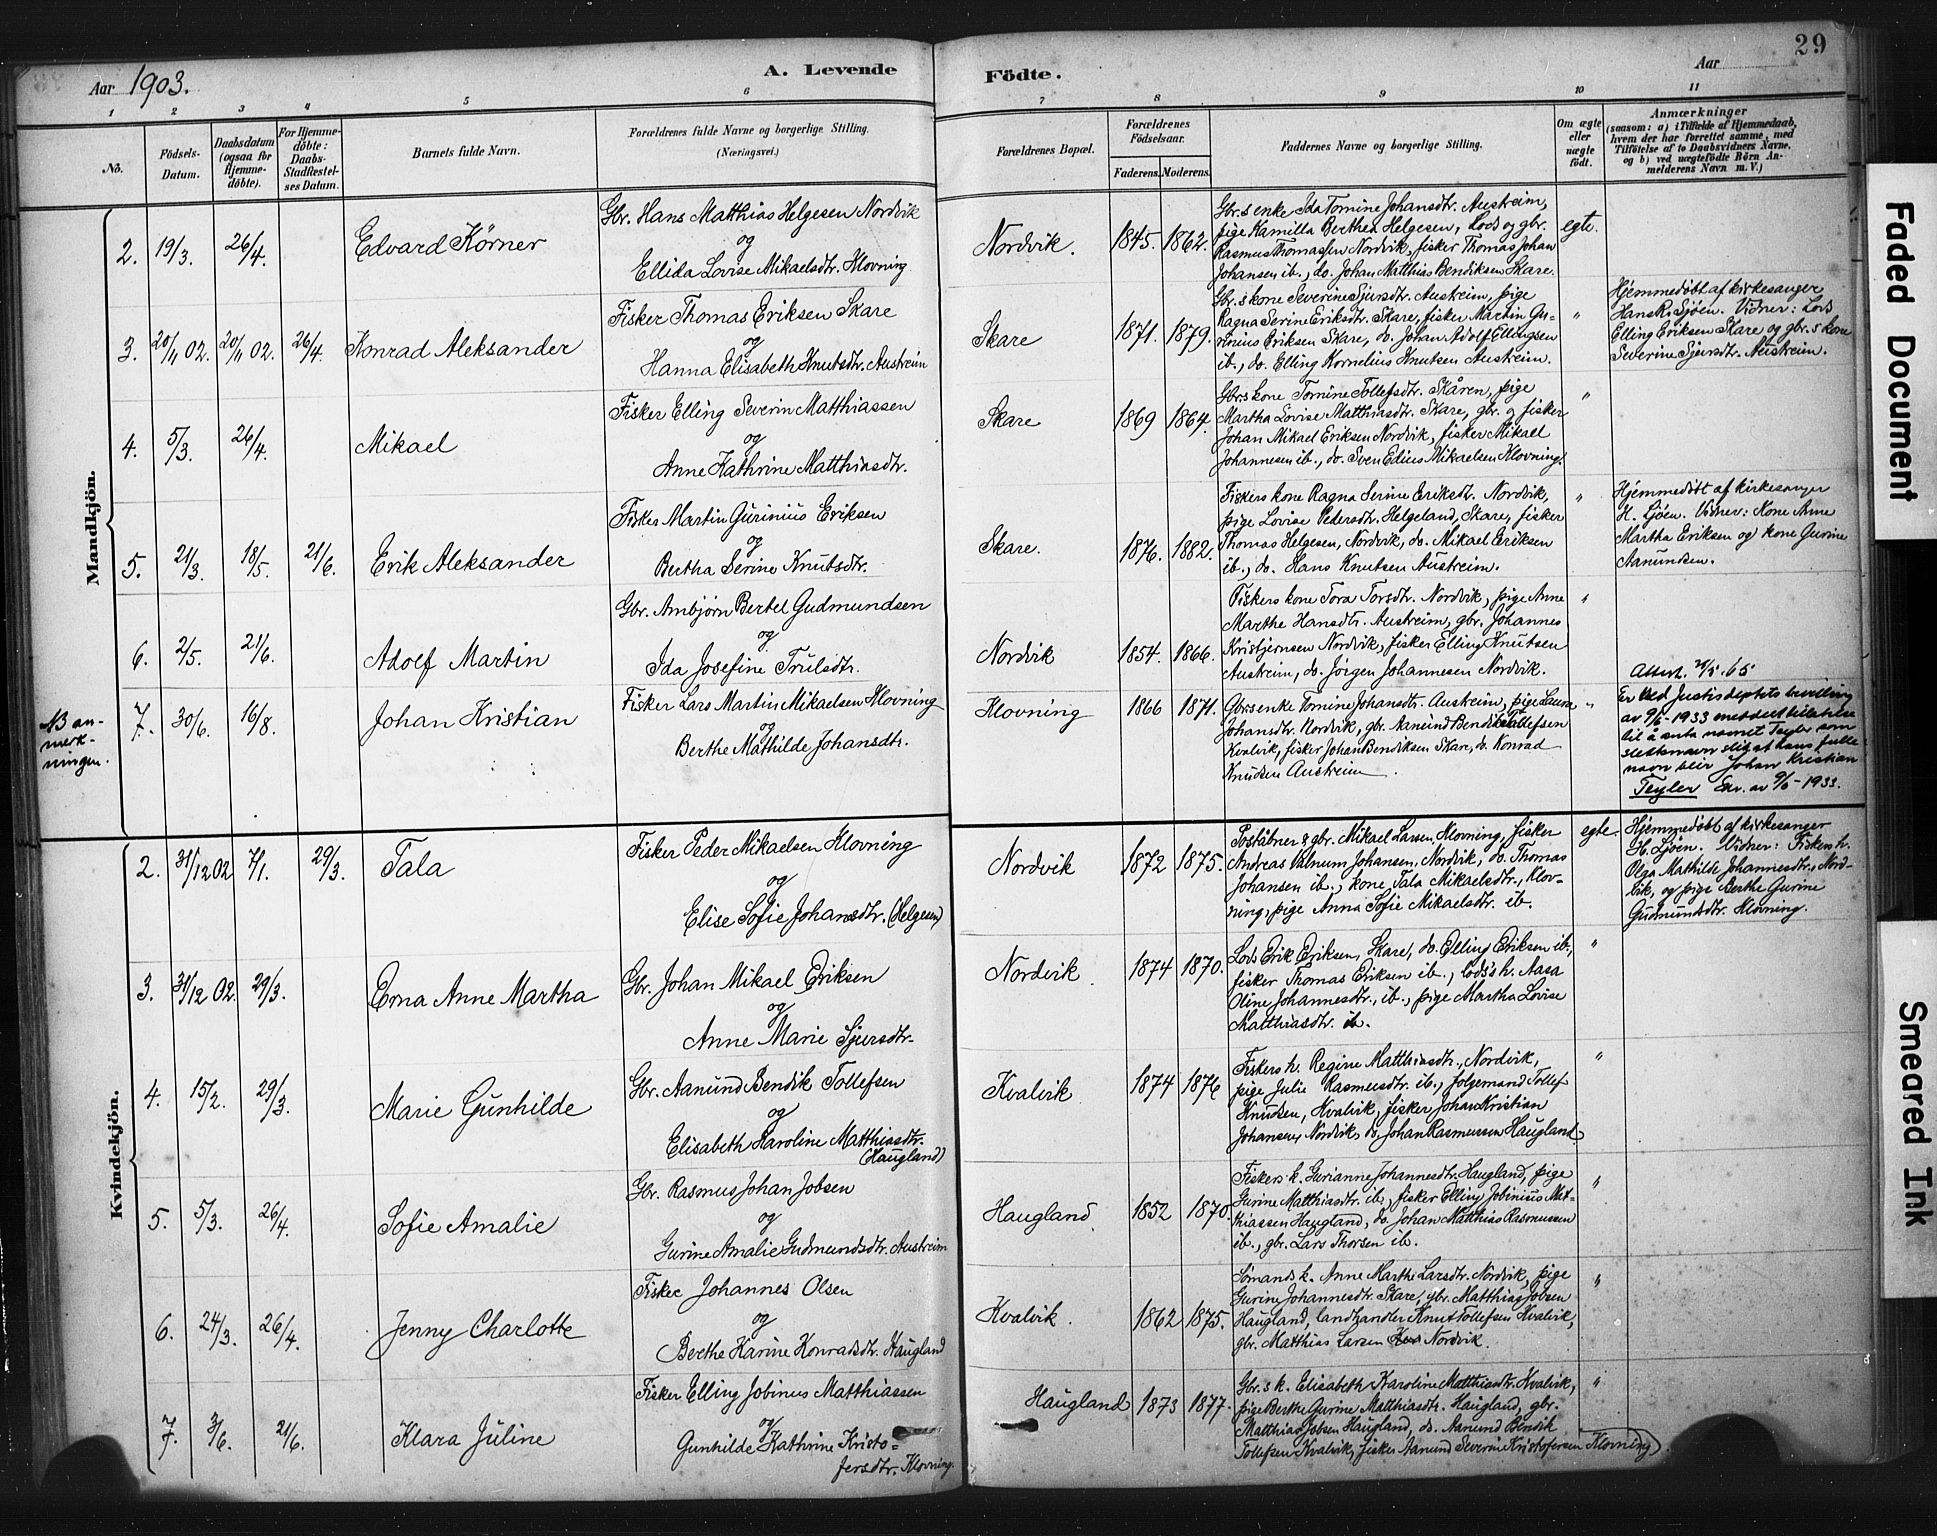 29
Aar 1903.
A. Levende
Födte.
Aar
1 2 3 4 5 6 7 8 9 10 11
No.
Födsels-
Datum.
Daabsdatum
(ogsaa for
Hjemme-
döbte).
For Hjemme-
döbte:
Daabs-
Stadfæstel-
ses Datum.
Barnets fulde Navn.
Forældrenes fulde Navne og borgerlige Stilling.
(Næringsvei.)
Forældrenes Bopæl.
Forældrenes
Födselsaar.
Faderens. Moderens.
Faddernes Navne og borgerlige Stilling.
Om ægte
eller
uægte
födt.
Anmærkninger
(saasom: a) i Tilfælde af Hjemmedaab,
hvem der har forrettet samme, med
Tilföielse af to Daabsvidners Navne,
og b) ved uægtefödte Börn An-
melderens Navn m. V.)
Mandkjön.
2. 19/3. 26/4. Edvard Körner
Gbr. Hans Matthias Helgesen Nordvik
og
Ellida Lovise Mikaelsdtr. Klovning
Nordvik. 1845. 1862.
Gbr.s enke Ida Tomine Johansdtr. Austreim,
pige Kamilla Berthea Helgesen, Lods og gbr.
Rasmus Thomassen Nordvik, fisker Thomas Johan
Johansen ib., do. Johan Matthias Bendiksen Skare.
egte.
3. 20/11 02. 20/11 02. 26/4. Konrad Aleksander
Fisker Thomas Eriksen Skare
og
Hanna Elisabeth Knutsdtr. Austreim
Skare 1871. 1879.
Gbr.s kone Severine Sjursdtr. Austreim, pige
Ragna Serine Eriksdtr. Skare, fisker Martin Gu-
rinius Eriksen Skare, do. Johan Adolf Ellingsen
ib., do. Elling Kornelius Knutsen Austreim.
"
Hjemmedöbt af kirkesanger
Hans R. Sjöen. Vidner: Lods
Elling Eriksen Skare og gbr.s kone
Severine Sjursdtr. Austreim.
4. 5/3. 26/4. Mikael
Fisker Elling Severin Matthiassen
og
Anne Kathrine Matthiasdtr.
Skare 1869 1864.
Gbr.s kone Tomine Tollefsdtr. Skåren, pige
Martha Lovise Matthiasdtr. Skare, gbr. og fisker
Johan Mikael Eriksen Nordvik, fisker Mikael
Johannesen ib., do. Sven Edius Mikaelsen Klovning.
"
5. 21/3. 18/5. 21/6. Erik Aleksander
Fisker Martin Gurinius Eriksen
og
Bertha Serine Knutsdtr.
Skare. 1876. 1882.
Fiskers kone Ragna Serine Eriksdtr. Nordvik,
pige Lovise Pedersdtr. Helgeland, Skare, fisker
Thomas Helgesen, Nordvik, do. Mikael Eriksen
ib., do. Hans Knutsen Austreim.
"
Hjemmedöbt af kirkesanger
H. Sjöen. Vidner: Kone Anne
Martha Eriksen og kone Gurine
Aanundsen.
6. 2/5. 21/6. Adolf Martin
Gbr. Arnbjørn Bertel Gudmundsen
og
Ida Josefine Trulsdtr.
Nordvik 1854. 1866.
Fiskers kone Tora Torsdtr. Nordvik, pige Anne
Marthe Hansdtr. Austreim, gbr. Johannes
Kristjernsen Nordvik, fisker Elling Knutsen
Austreim, do. Jörgen Johannesen Nordvik.
"
Attest. 65
NB an-
merk-
ningen.
7. 30/6. 16/8. Johan Kristian
Fisker Lars Martin Mikaelsen Klovning
og
Berthe Mathilde Johansdtr.
Klovning 1866 1871.
Gbr.s enke Tomine Johansdtr. Austreim, pige Laura
Johansdtr. Nordvik, gbr. Aanund Bendik Tollefsen
Kvalvik, fisker Johan Bendiksen Skare, do. Konrad
Knudsen Austreim.
"
Er ved Justisdeptets bevilling
av 9/6-1933 meddelt tillatelse
til å anta navnet Teyler som
slektsnavn slik at hans fulle
navn blir Johan Kristian
Teyler Skr. av 9/6-1933.
Kvindekjön.
2. 31/12 02 7/1. 29/3. Tala
Fisker Peder Mikaelsen Klovning
og
Elise Sofie Johansdtr. (Helgesen)
Nordvik 1872 1875.
Poståbner & gbr. Mikael Larsen Klovning, fisker
Andreas Valnum Johansen, Nordvik, do. Thomas
Johansen ib., kone Tala Mikaelsdtr., Klov-
ning, pige Anna Sofie Mikaelsdtr. ib.
egte.
Hjemmedöbt af kirkesanger
H. Sjöen. Vidner: Fiskers h.
Olga Mathilde Johannesdtr., Nord-
vik, og pige Berthe Gurine
Gudmundsdtr. Klovning.
3. 31/12 02. 29/3. Erna Anne Martha
Gbr. Johan Mikael Eriksen
og
Anne Marie Sjursdtr.
Nordvik. 1874 1870.
Lods Erik Eriksen, Skare, do. Elling Eriksen ib.,
fisker Thomas Eriksen ib., Lods's h. Aasa
Oline Johannesdtr., ib., pige Martha Lovise
Matthiasdtr. ib.
"
4. 15/2. 29/3. Marie Gunhilde
Gbr. Aanund Bendik Tollefsen
og
Elisabeth Karoline Matthiasdtr.
(Haugland)
Kvalvik 1874 1876
Fiskers h. Regine Matthiasdtr., Nordvik,
pige Julie Rasmusdtr. ib., folgemand Tollef
Knudsen, Kvalvik, fisker Johan Kristian
Johansen, Nordvik, do. Johan Rasmussen Haugland.
"
5. 5/3. 26/4. Sofie Amalie
Gbr. Rasmus Johan Jobsen
og
Gurine Amalie Gudmundsdtr. Austreim
Haugland. 1852 1870.
Fiskers k. Gurianne Johannesdtr. Haugland, pige
Gurine Matthiasdtr. ib., fisker Elling Jobinius Mat-
thiassen Haugland, do. Johan Matthias Rasmussen
ib., gbr. Lars Thorsen ib.
"
6. 24/3. 26/4. Jenny Charlotte
Fisker Johannes Olsen
og
Berthe Karine Konradsdtr. Haugland
Kvalvik. 1862 1875.
Sömands k. Anne Marthe Larsdtr. Nordvik, pige
Gurine Johannesdtr. Skare, gbr. Matthias Jobsen
Haugland, landhandler Knut Tollefsen Kvalvik,
gbr. Matthias Larsen Nordvik.
"
7. 3/6. 21/6. Klara Juline
Fisker Elling Jobinus Matthiassen
og
Gunhilde Kathrine Kristo-
fersdtr. Klovning.
Haugland 1873 1877.
Gbr.s k. Elisabeth Karoline Matthiasdtr. Kvalvik,
pige Berthe Gurine Matthiasdtr. Haugland, gbr.
Matthias Jobsen Haugland, do. Aanund Bendik
Tollefsen Kvalvik, fisker Aanund Severin Kristofersen Klovning.
"
Faded Document
Smeared Ink